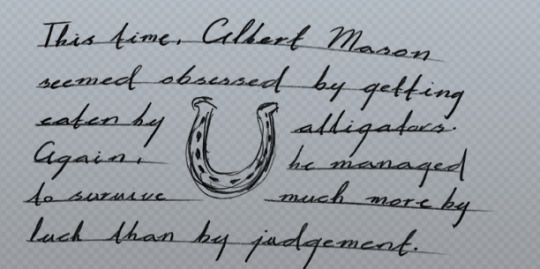 This time, Albert Mason
seemed obsessed by getting
eaten by alligators.
Again, he managed
to survive much more by
luck than by judgement.